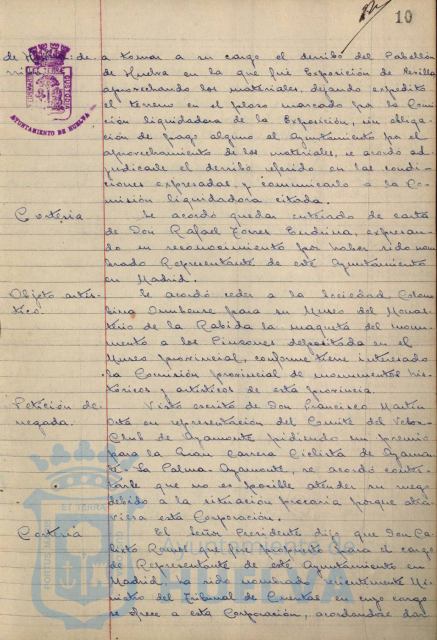 10
a tomar a su cargo el derribo del Pabellón
de Huelva en la que fué Exposición de Sevilla
aprovechando los materiales, dejando expedito
el terreno en el plazo marcado por la Comi-
sión liquidadora de la Exposición, sin obliga-
ción de pago alguno al Ayuntamiento por el
aprovechamiento de los materiales, se acordó ad-
judicarle el derribo referido en las condi-
ciones expresadas, y comunicarlo a la Co-
misión liquidadora citada.
AYUNTAMIENTO DE HUELVA
Cortesía
Se acordó quedar enterado de carta
de Don Rafael Torres Endrina, expresan-
do su reconocimiento por haber sido nom-
brado Representante de este Ayuntamiento
en Madrid.
Objeto artís-
tico.
Se acordó ceder a la Sociedad Colom-
bina Onubense para su Museo del Monas-
terio de la Rabida la maqueta del monu-
mento a los Pinzones depositada en el
Museo provincial, conforme tiene interesado
la Comisión provincial de monumentos his-
tóricos y artísticos de esta provincia.
Petición de-
negada.
Visto escrito de Don Francisco Martín
en representación del Comité del Veloz-
Club de Ayamonte pidiendo un premio
para la Gran Carrera Ciclista de Ayamon-
te La Palma-Ayamonte, se acordó contes-
tarle que no es posible atender su ruego
debido a la situación precaria porque atra-
viesa esta Corporación.
Cortesía
El Señor Presidente dijo que Don Ca-
lixto que fué propuesto para el cargo
de Representante de este Ayuntamiento en
Madrid ha sido nombrado recientemente Mi-
nistro del Tribunal de Cuentas en cuyo cargo
se ofrece a esta Corporación, acordándose dar